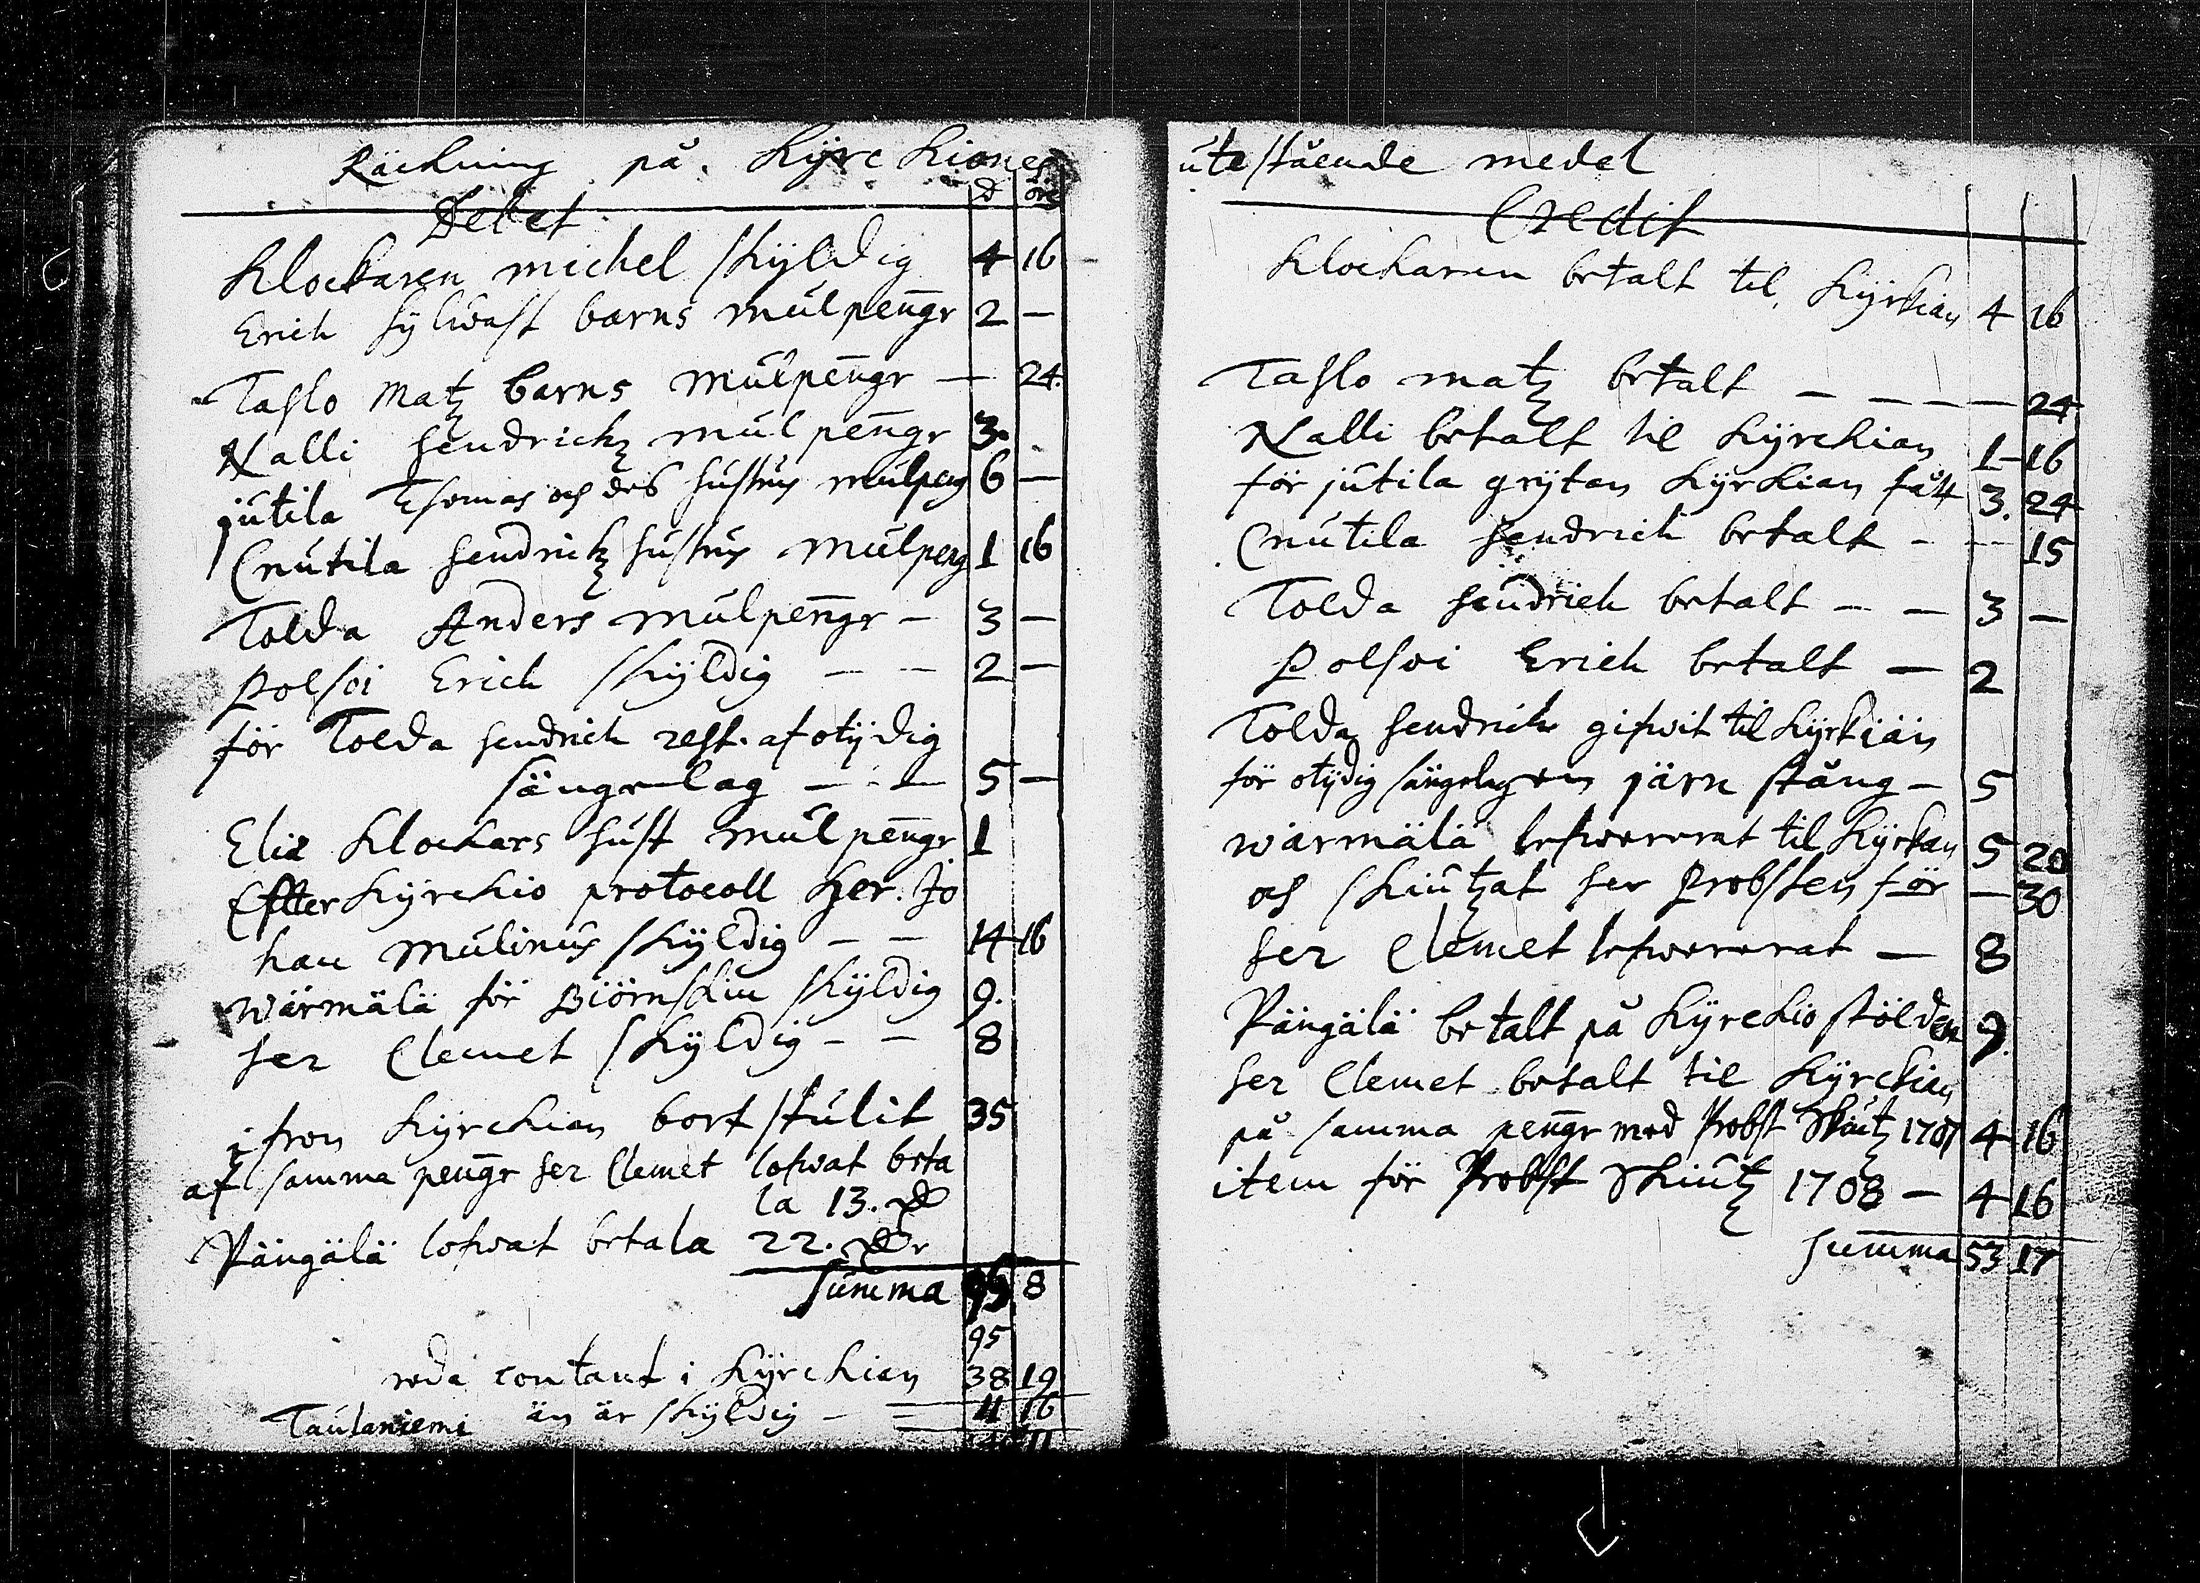 Räckning på Kÿrckiones
Debet
d öre
Klockaren michel skÿldig 4 16
Erich sÿlwast barns mulpengr 2 —
Taslo Matz barns mulpengr — 24.
Nalli hendrichz mulpengr 3.
jutila Thomas och des hustrus mulpeng 6 —
Cnutila hendrichz hustrus mulpeng 1 16
Tolda Anders mulpengr — 3 —
Polsoi Erich skÿldig — — 2 —
för Tolda hendrich rest. af otÿdig
sängelag — — 5 —
Elia Klockars hust mulpengr 1
Effter Kÿrckio protocoll her. Jo
han Mulinus skÿldig — — 14 16
wärmälä för Biörnskin skÿldig 9.
her Clemet skÿldig — — 8
ifron Kÿrckian bort stulit 35
af samma pengr her Clemet lofwat beta
la 13. d
Pängälä lofwat betala 22. dr
Summa 95 8
95
reda contant i Kÿrckian 38 19
Taulaniemi än är skÿldig — 11 16
11
utestående medel
Credit
Klockaren betalt til Kÿrkian 4 16
Taslo matz betalt — — — — 24
Nalli betalt til Kÿrckian 1 — 16
för jutila grÿtan Kÿrkian fått 3. 24
Cnutila hendrich betalt — — 15
Tolda hendrich betalt — — 3 —
Polsoi Erich betalt — 2
Tolda hendrich gifwit til Kÿrkian
för otÿdig sängelag en järn stång — 5
wärmälä lefwererat til Kÿrkan 5 20
och skiutzat her Probsten för — 30
her Clemet lefwererat — 8
Pängälä betalt på Kÿrckio stölden 9.
her Clemet betalt til Kÿrckian
på samma pengr med Probst Skiutz 1707 4 16
item för Probst Skiutz 1708 — 4 16
Summa 53 17